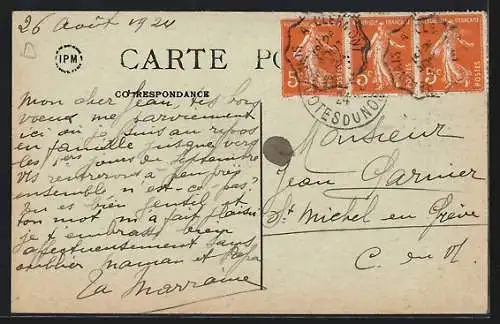 26 Août 1924
IPM
CARTE PO
CORRESPONDANCE
Mon cher Jean, tes bons
voeux me parviennent
ici où je suis au repos
en famille jusque vers
les 1ers jours de Septembre
Vs rentrerons à peu près
ensemble n'est-ce-pas?
Tu es bien gentil et
ton mot m'a fait plaisir
je t'embrasse bien
affectueusement sans
oublier maman et papa
Ta Marraine
Monsieur
Jean Garnier
St Michel en Grève
C. du N.
CÔTES DU NORD
5c
POSTES
5c
POSTES
5c
POSTES